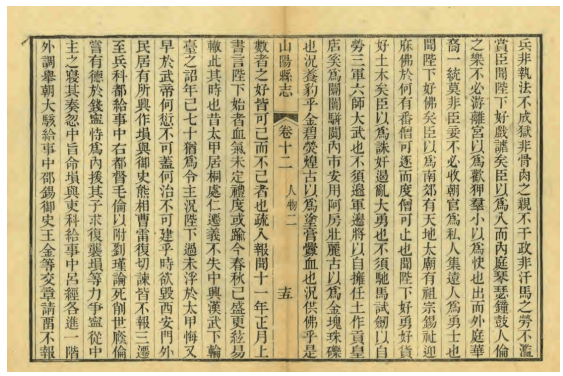 兵非執法不成獄非骨肉之親不干政非汗馬之勞不濫
賞臣聞陛下好戲謔矣臣以爲入而內庭琴瑟鐘鼓人倫
之樂不必游離宮以爲歡狎羣小以爲快也出而外庭華
裔一統莫非臣妾不必收朝官爲私人集遠人爲勇士也
聞陛下好佛矣臣以爲南郊有天地太廟有祖宗錫祉迎
庥佛於何有番僧可逐而度僧可止也聞陛下好勇好貨
好土木矣臣以爲誅奸遏亂大勇也不須馳馬試劒以自
勞三軍六師大武也不須邊軍邊將以自擁任土作貢皇
店奚爲闤闠駢闐內市安用阿房壯麗古以爲金塊珠礫
也況養豹乎金碧熒煌古以爲塗膏釁血也況供佛乎是
山陽縣志
卷十二
人物二
十五
數者之好皆可已而不已者也疏入報聞十一年正月上
書言陛下始者血氣未定禮度或踰今春秋已盛更絃易
轍此其時也昔太甲居桐處仁遷義不失中興漢武下輪
臺之詔年已七十猶爲令主況陛下過未浮於太甲悔又
早於武帝何愆不可蓋何治不可建乎時欲毀西安門外
民居有所興作塤與御史熊相曹雷復切諫皆不報三遷
至兵科都給事中右都督毛倫以附劉瑾論死削世廕倫
嘗有德於錢寧恃爲內援其子求復襲塤等力爭寧從中
主之寢其奏忽中旨命塤與吏科給事中呂經各進一階
外調舉朝大駭給事中邵錫御史王金等交章請畱不報